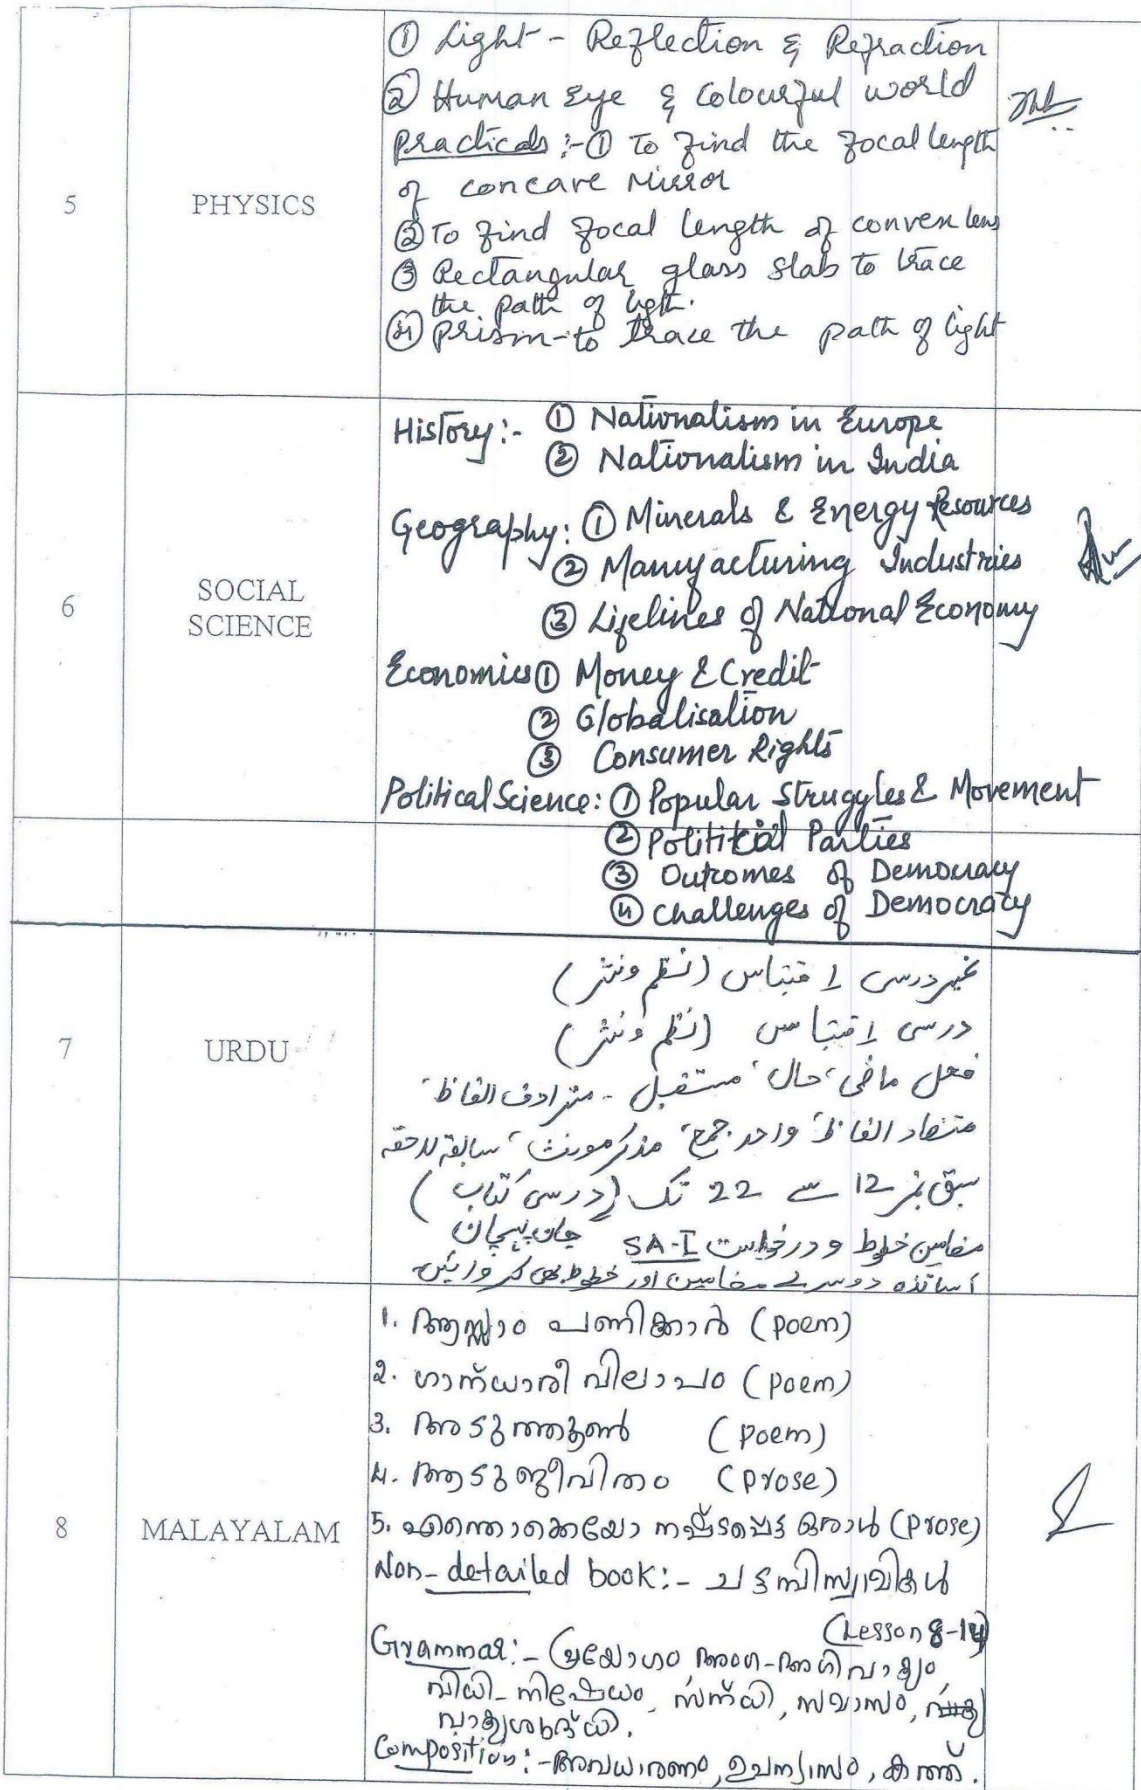 5
PHYSICS
① Light - Reflection & Refraction
② Human Eye & Colourful world
Practicals :- ① To find the focal length
of concave Mirror
② To find focal length of convex lens
③ Rectangular glass slab to trace
the path of light.
④ Prism - to trace the path of light
6
SOCIAL
SCIENCE
History:- ① Nationalism in Europe
② Nationalism in India
Geography: ① Minerals & Energy Resources
② Manufacturing Industries
③ Lifelines of National Economy
Economics ① Money & Credit
② Globalisation
③ Consumer Rights
Political Science: ① Popular Struggles & Movement
② Political Parties
③ Outcomes of Democracy
④ Challenges of Democracy
7
URDU
غیر درسی اقتباس (نظم و نثر)
درسی اقتباس (نظم و نثر)
فعل ماضی، حال، مستقبل - مترادف الفاظ،
متضاد الفاظ، واحد جمع، مذکر مونث، سابقہ لاحقہ
سبق نمبر 12 سے 22 تک (درسی کتاب) جان پہچان
مضامین خطوط و درخواست SA-I
اساتذہ دوسرے مضامین اور خطوط بھی کروائیں
8
MALAYALAM
1. പണിക്കാർ (poem)
2. ഗാന്ധാരീ വിലാപം (poem)
3. അടുത്തൂൺ (poem)
4. ആടുജീവിതം (prose)
5. എന്തൊക്കെയോ നഷ്ടപ്പെട്ട ഒരാൾ (prose)
Non-detailed book:- ചട്ടമ്പിസ്വാമികൾ
(Lesson 8-14)
Grammar:- പ്രയോഗം, അംഗ-അംഗിവാക്യം,
വിധി-നിഷേധം, സന്ധി, സമാസം,
വാക്യശുദ്ധി.
Composition:- അവധാരണം, ഉപന്യാസം, കത്ത്.